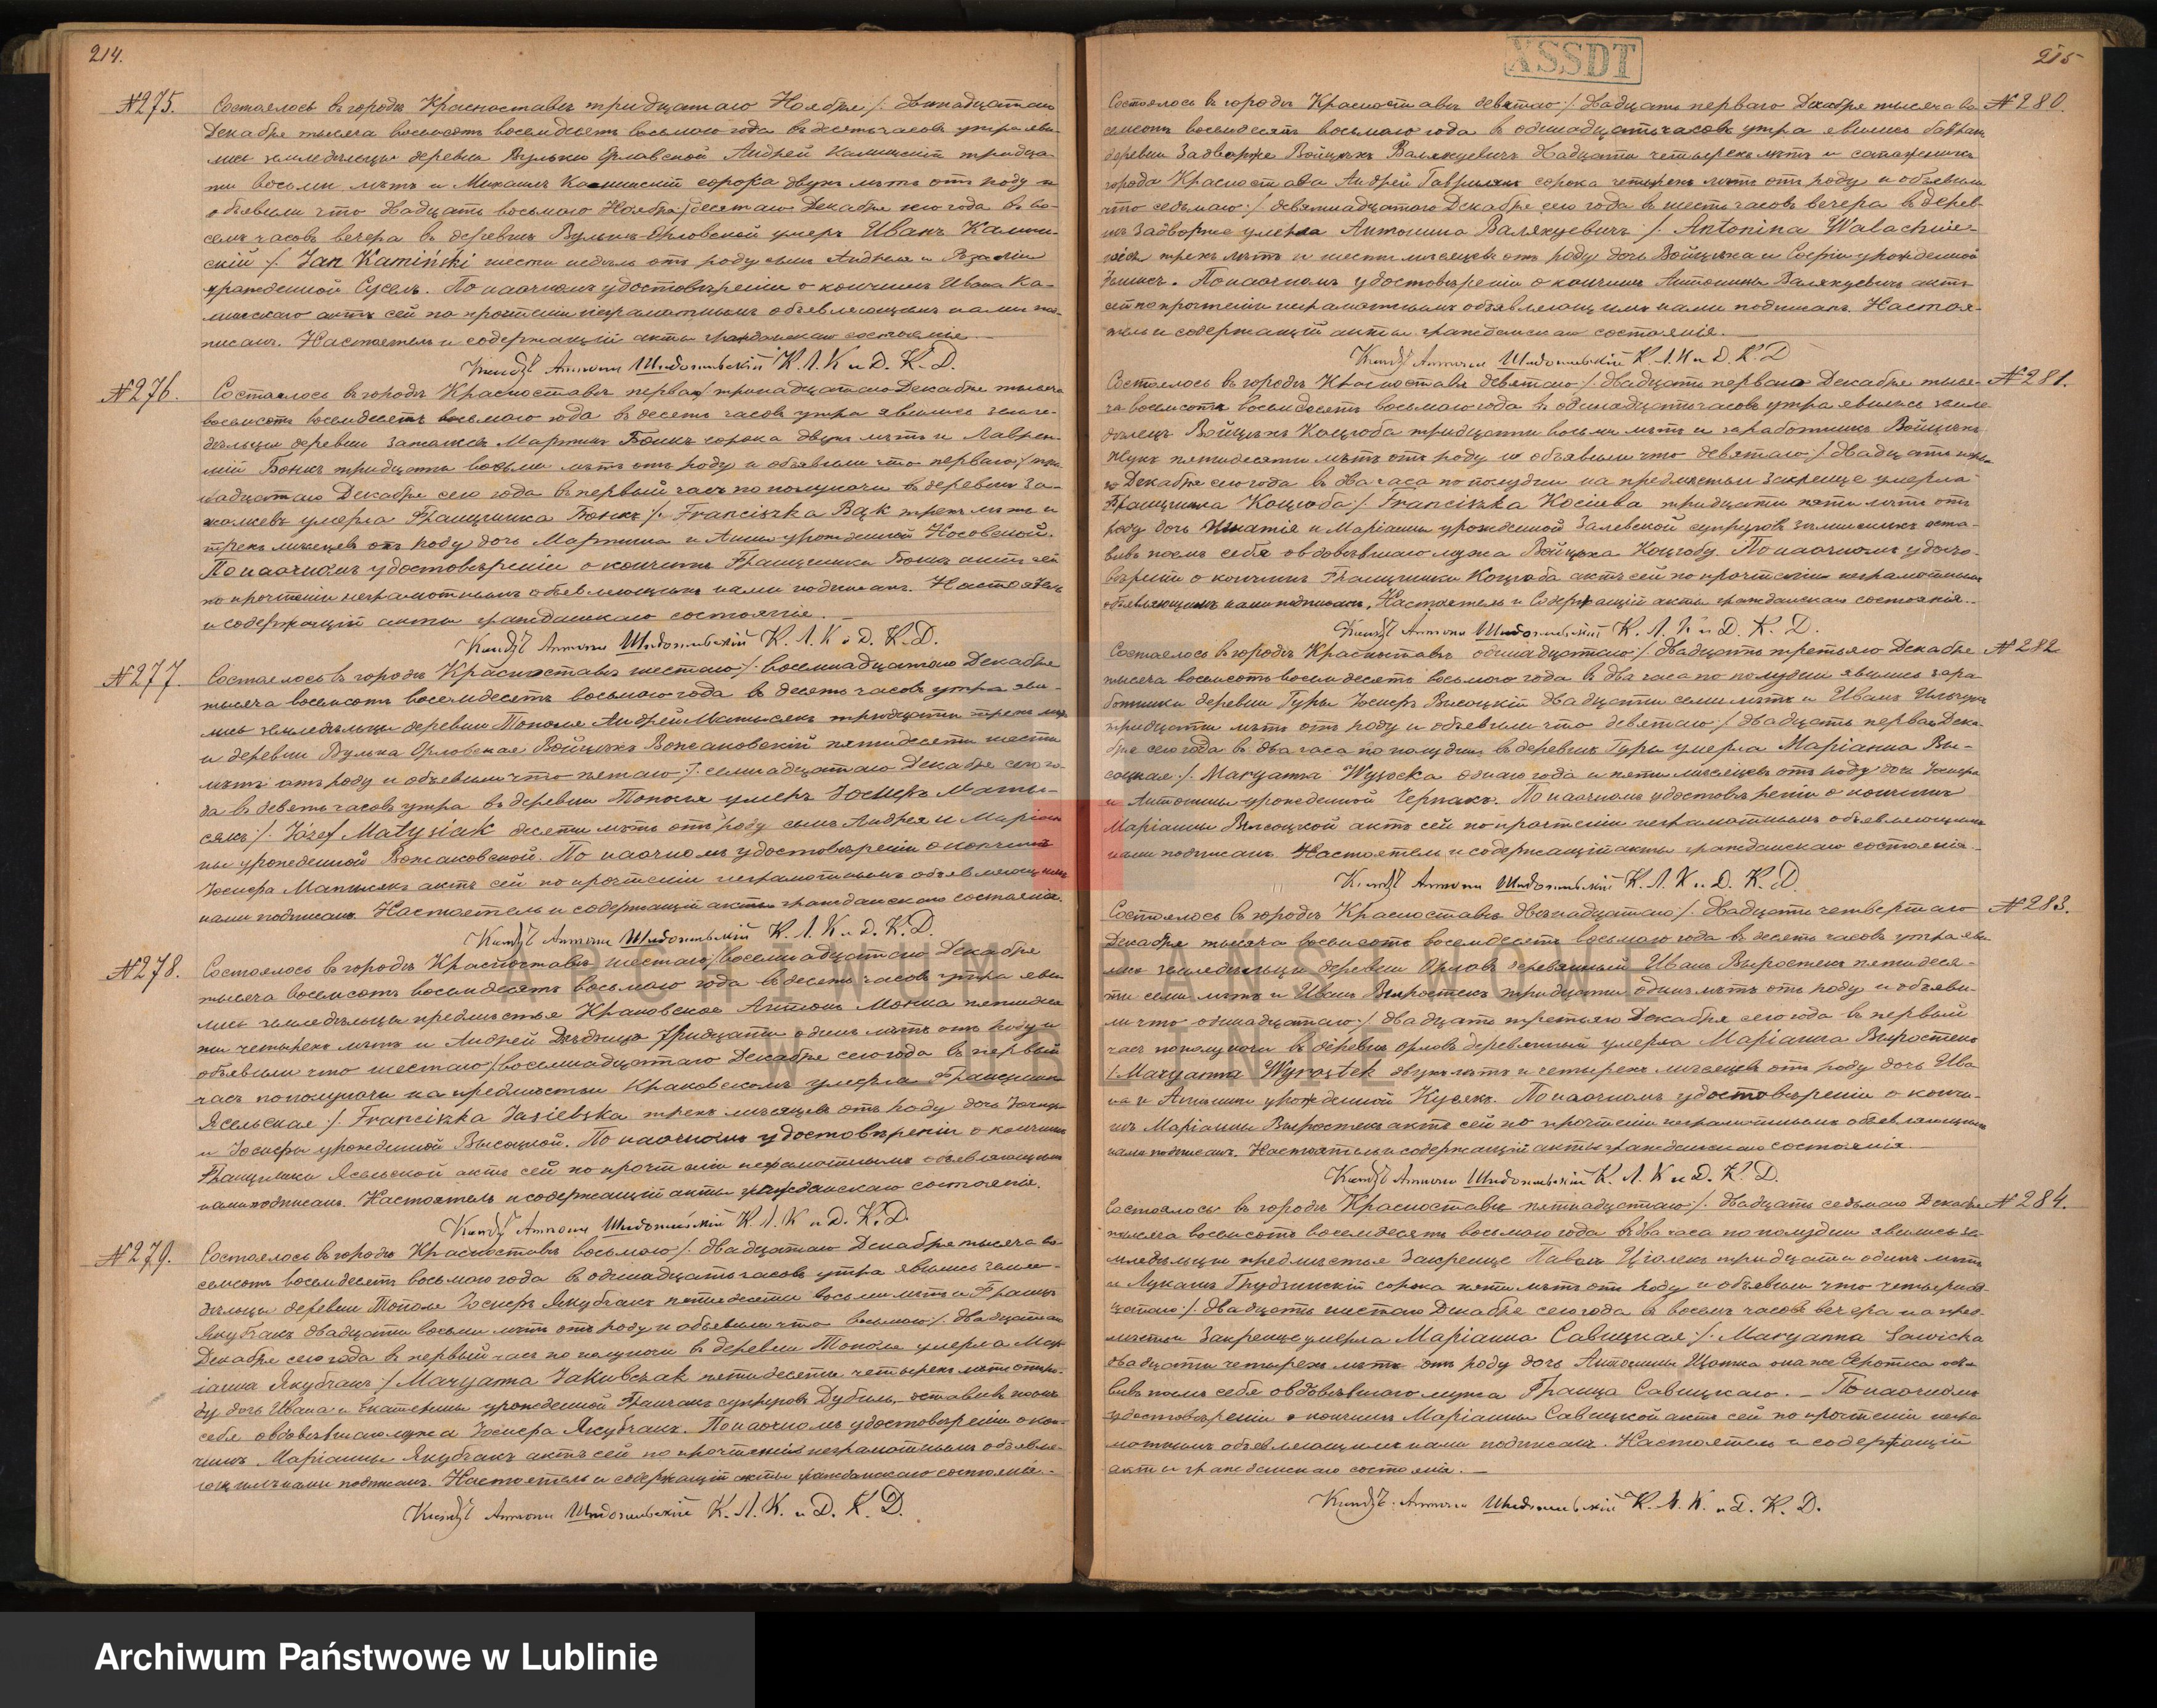 214.
№275.
Состоялось въ городѣ Красноставѣ тридцатаго Ноября /: двѣнадцатаго
Декабря тысяча восемьсотъ восемьдесятъ восьмаго года въ десять часовъ утра яви-
лись земледѣльцы деревни Вульки Орловской Андрей Каминскій тридца-
ти восьми лѣтъ и Михаилъ Каминскій сорока двухъ лѣтъ отъ роду и
объявили что двадцать восьмаго Ноября /: десятаго Декабря сего года въ во-
семь часовъ вечера въ деревнѣ Вулькѣ-Орловской умеръ Иванъ Камин-
скій /: Jan Kamiński шести недѣль отъ роду сынъ Андрея и Розаліи
урожденной Сусель. По наочномъ удостовѣреніи о кончинѣ Ивана Ка-
минскаго актъ сей по прочтеніи неграмотнымъ объявляющимъ нами под-
писанъ. Настоятель и содержащій акты гражданскаго состоянія.
Ксендзъ Антони К. Л. К. и Д. К. Д.
№276.
Состоялось въ городѣ Красноставѣ перваго /: тринадцатаго Декабря тысяча
восемьсотъ восемьдесятъ восьмаго года въ десять часовъ утра явились земле-
дѣльцы деревни Мартинъ Бонкъ сорока двухъ лѣтъ и Лаврен-
тій Бонкъ тридцати восьми лѣтъ отъ роду и объявили что перваго /: три-
надцатаго Декабря сего года въ первый часъ по полуночи въ деревнѣ
умерла Францишка Бонкъ /: Franciszka Bąk трехъ лѣтъ и
трехъ мѣсяцевъ отъ роду дочь Мартина и Анны урожденной Носовской.
По наочномъ удостовѣреніи о кончинѣ Францишки Бонкъ актъ сей
по прочтеніи неграмотнымъ объявляющимъ нами подписанъ. Настоятель
и содержащій акты гражданскаго состоянія.
Ксендзъ Антони К. Л. К. и Д. К. Д.
№277.
Состоялось въ городѣ Красноставѣ шестаго /: восемнадцатаго Декабря
тысяча восемьсотъ восемьдесятъ восьмаго года въ десять часовъ утра яви-
лись земледѣльцы деревни Тополя Андрей Матысякъ тридцати трехъ лѣтъ
и деревни Вулька Орловская Войцѣхъ пятидесяти шести
лѣтъ отъ роду и объявили что пятаго /: семнадцатаго Декабря сего го-
да въ девять часовъ утра въ деревни Тополя умеръ Іосифъ Маты-
сякъ /: Józef Matysiak десяти лѣтъ отъ роду сынъ Андрея и Маріан-
ны урожденной По наочномъ удостовѣреніи о кончинѣ
Іосифа Матысякъ актъ сей по прочтеніи неграмотнымъ объявляющимъ
нами подписанъ. Настоятель и содержащій акты гражданскаго состоянія.
Ксендзъ Антони К. Л. К. и Д. К. Д.
№278.
Состоялось въ городѣ Красноставѣ шестаго /: восемнадцатаго Декабря
тысяча восемьсотъ восемьдесятъ восьмаго года въ десять часовъ утра яви-
лись земледѣльцы предмѣстья Краковское Антонъ пятидеся-
ти четырехъ лѣтъ и Андрей тридцати одинъ лѣтъ отъ роду и
объявили что шестаго /: восемнадцатаго Декабря сего года въ первый
часъ по полуночи на предмѣстьи Краковскомъ умерла Францишка
Ясельская /: Franciszka Jasielska трехъ мѣсяцевъ отъ роду дочь
и Іосифы урожденной Высоцкой. По наочномъ удостовѣреніи о кончинѣ
Францишки Ясельской актъ сей по прочтеніи неграмотнымъ объявляющимъ
нами подписанъ. Настоятель и содержащій акты гражданскаго состоянія.
Ксендзъ Антони К. Л. К. и Д. К. Д.
№279.
Состоялось въ городѣ Красноставѣ восьмаго /: двадцатаго Декабря тысяча во-
семьсотъ восемьдесятъ восьмаго года въ одинадцать часовъ утра явились земле-
дѣльцы деревни Тополя Іосифъ Якубчакъ пятидесяти восьми лѣтъ и Францъ
Якубчакъ двадцати восьми лѣтъ отъ роду и объявили что восьмаго /: двадцатаго
Декабря сего года въ первый часъ по полуночи въ деревни Тополя умерла Мар-
іанна Якубчакъ /: Maryanna Jakubczak пятидесяти четырехъ лѣтъ отъ ро-
ду дочь Ивана и Екатерины урожденной супруговъ Дубиль, оставивъ послѣ
себя овдовѣвшаго мужа Іосифа Якубчакъ. По наочномъ удостовѣреніи о кон-
чинѣ Маріанны Якубчакъ актъ сей по прочтеніи неграмотнымъ объявля-
ющимъ нами подписанъ. Настоятель и содержащій акты гражданскаго состоянія.
Ксендзъ Антони К. Л. К. и Д. К. Д.
XSSDT
215
№280.
Состоялось въ городѣ Красноставѣ девятаго /: двадцать перваго Декабря тысяча во-
семьсотъ восемьдесятъ восьмаго года въ одинадцать часовъ утра явились
деревни Задворже Войцѣхъ двадцати четырехъ лѣтъ и сапожникъ
города Красностава Андрей Гаврилякъ сорока четырехъ лѣтъ отъ роду и объявили
что седьмаго /: девятнадцатаго Декабря сего года въ шесть часовъ вечера въ дерев-
нѣ Задворже умерла Антонина /: Antonina
трехъ лѣтъ и шести мѣсяцевъ отъ роду дочь Войцѣха и Софіи урожденной
По наочномъ удостовѣреніи о кончинѣ Антонины актъ
сей по прочтеніи неграмотнымъ объявляющимъ нами подписанъ. Настоя-
тель и содержащій акты гражданскаго состоянія.
Ксендзъ Антони К. Л. К. и Д. К. Д.
№281.
Состоялось въ городѣ Красноставѣ девятаго /: двадцать перваго Декабря тыся-
ча восемьсотъ восемьдесятъ восьмаго года въ одинадцать часовъ утра явились земле-
дѣлецъ Войцѣхъ Коцюба тридцати восьми лѣтъ и заработникъ Войцѣхъ
пятидесяти лѣтъ отъ роду и объявили что девятаго /: двадцать перва-
го Декабря сего года въ два часа по полудни на предмѣстьи Закренце умерла
Францишка Коцюба /: Franciszka Kociuba тридцати пяти лѣтъ отъ
роду дочь Игнатія и Маріанны урожденной Залевской супруговъ оста-
вивъ послѣ себя овдовѣвшаго мужа Войцѣха Коцюбу. По наочномъ удосто-
вѣреніи о кончинѣ Францишки Коцюба актъ сей по прочтеніи неграмотнымъ
объявляющимъ нами подписанъ. Настоятель и Содержащій акты гражданскаго состоянія.
Ксендзъ Антони К. Л. К. и Д. К. Д.
№282
Состоялось въ городѣ Красноставѣ одинадцатаго /: двадцать третьяго Декабря
тысяча восемьсотъ восемьдесятъ восьмаго года въ два часа по полудни явились зара-
ботники деревни Гуры Іосифъ Высоцкій двадцати семи лѣтъ и Иванъ
тридцати лѣтъ отъ роду и объявили что девятаго /: двадцать перваго Дека-
бря сего года въ два часа по полудни въ деревнѣ Гуры умерла Маріанна Вы-
соцкая /: Maryanna Wysocka одного года и пяти мѣсяцевъ отъ роду дочь Іосифа
и Антонины урожденной Черпакъ. По наочномъ удостовѣреніи о кончинѣ
Маріанны Высоцкой актъ сей по прочтеніи неграмотнымъ объявляющимъ
нами подписанъ. Настоятель и содержащій акты гражданскаго состоянія.
Ксендзъ Антони К. Л. К. и Д. К. Д.
№283.
Состоялось въ городѣ Красноставѣ двѣнадцатаго /: двадцать четвертаго
Декабря тысяча восемьсотъ восемьдесятъ восьмаго года въ десять часовъ утра яви-
лись земледѣльцы деревни Орловъ деревянный Иванъ Выростекъ пятидеся-
ти семи лѣтъ и Иванъ Выростекъ тридцати однихъ лѣтъ отъ роду и объяви-
ли что одинадцатаго /: двадцать третьяго Декабря сего года въ первый
часъ по полуночи въ деревнѣ Орловъ деревянный умерла Маріанна Выростекъ
/: Maryanna Wyrostek двухъ лѣтъ и четырехъ мѣсяцевъ отъ роду дочь Ива-
на и Антонины урожденной Кусякъ. По наочномъ удостовѣреніи о кончи-
нѣ Маріанны Выростекъ актъ сей по прочтеніи неграмотнымъ объявляющимъ
нами подписанъ. Настоятель и содержащій акты гражданскаго состоянія.
Ксендзъ Антони К. Л. К. и Д. К. Д.
№284.
Состоялось въ городѣ Красноставѣ пятнадцатаго /: двадцать седьмаго Декабря
тысяча восемьсотъ восемьдесятъ восьмаго года въ два часа по полудни явились зе-
мледѣльцы предмѣстья Закренце Павелъ тридцати одинъ лѣтъ
и Лукашъ Грудзинскій сорока пяти лѣтъ отъ роду и объявили что четырнад-
цатаго /: двадцать шестаго Декабря сего года въ восемь часовъ вечера на пред-
мѣстьи Закренце умерла Маріанна Савицкая /: Maryanna Sawicka
двадцати четырехъ лѣтъ отъ роду дочь Антонины она же оста-
вивъ послѣ себя овдовѣвшаго мужа Франца Савицкаго. – По наочномъ
удостовѣреніи о кончинѣ Маріанны Савицкой актъ сей по прочтеніи негра-
мотнымъ объявляющимъ нами подписанъ. Настоятель и содержащій
акты гражданскаго состоянія. –
Ксендзъ Антони К. Л. К. и Д. К. Д.
ARCHIWUM PAŃSTWOWE
W LUBLINIE
Archiwum Państwowe w Lublinie